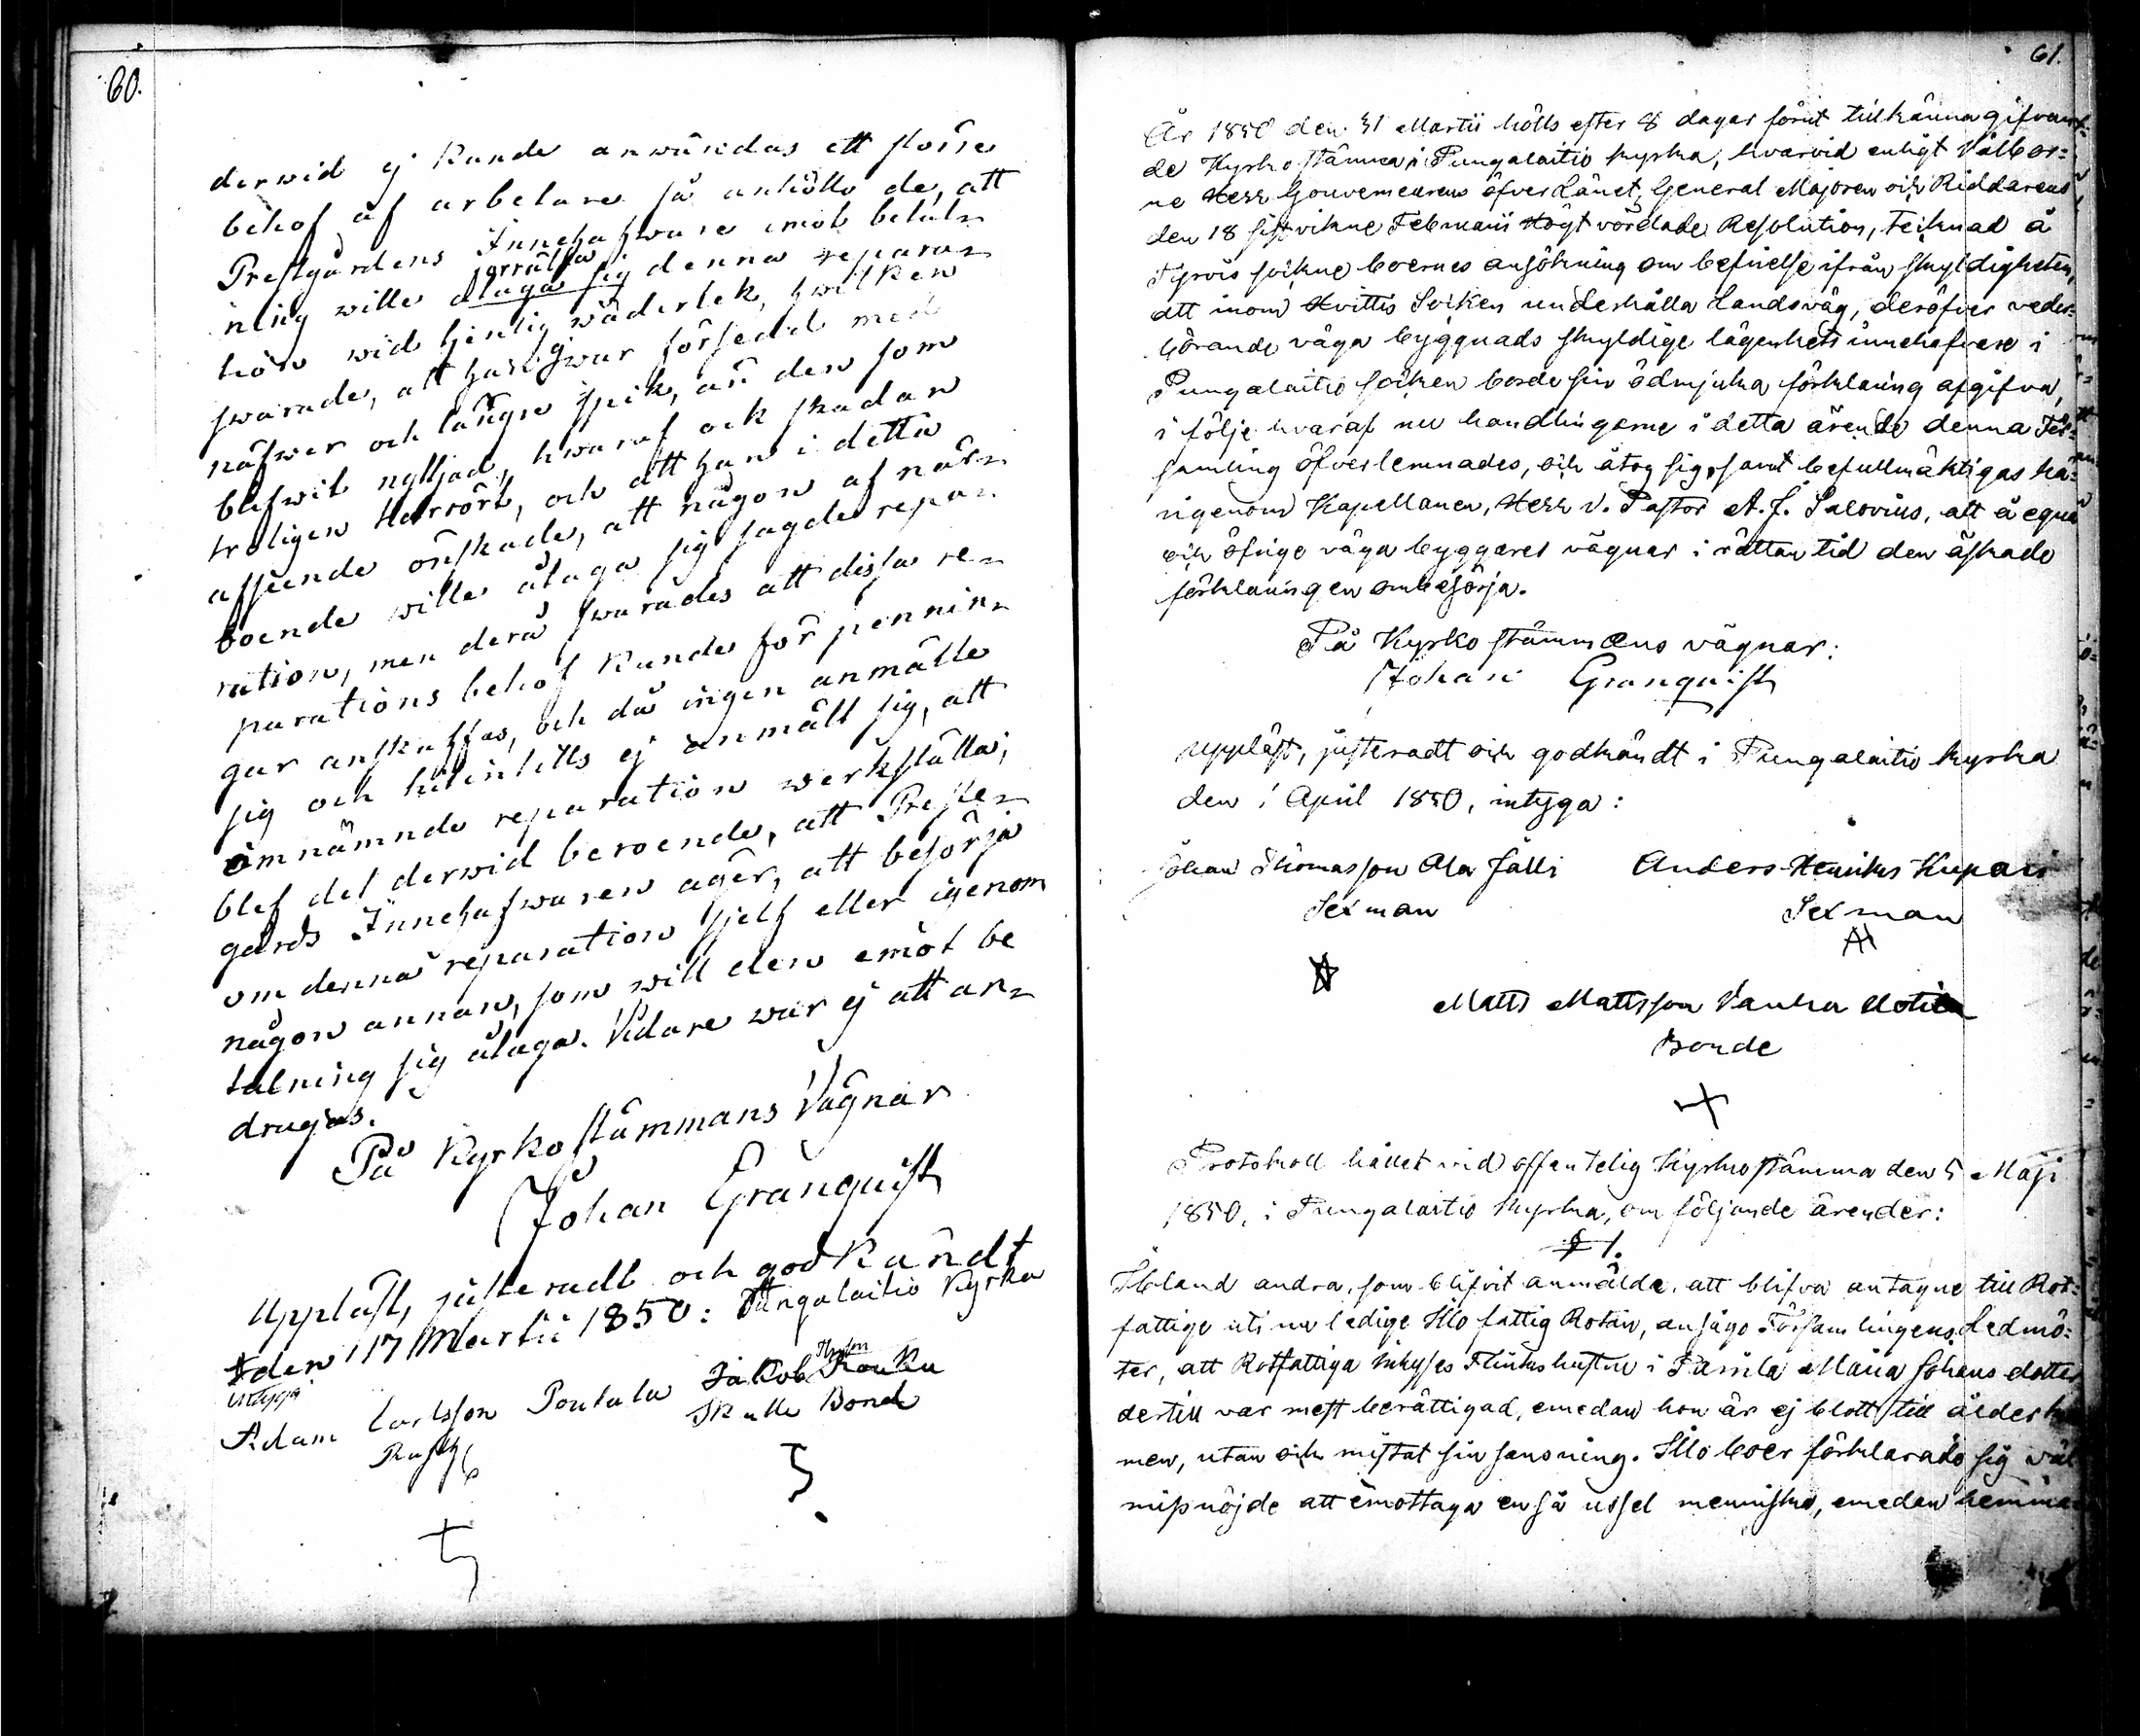 60.
derwid ej kunde anwändas ett större
behof af arbetare så anhöllo de, att
Prestgårdens Innehafware emot betal-
ning wille åtaga sig denna repara-
förrätta
tion wid tjenlig wäderlek, hwilken
swarade, att han ej war försedd med
näfwer och längre spik, än den som
blifwit nyttjad, hwaraf ock skadan
troligen härrört, och att han i detta
afseende önskade, att någon af när-
boende wille åtaga sig sagde repa-
ration, men derå swarades att dessa re-
parations behof kunde för pennin-
gar anskaffas, och då ingen anmälte
sig och hitintills ej anmält sig, att
omnämnde reparation werkställa;
blef det derwid beroende, att Preste-
gårds Innehafwaren äger, att besörja
om denna reparation sjelf eller igenom
någon annan, som will den emot be
talning sig åtaga. Vidare war ej att an-
dragas.
På Kyrkostämmans Vägnar
Johan Granquist
Uppläst, justeradt och godkändt
den 17 Martii 1850: Pungalaitio Kyrka
intyga
Adam Carlsson Pouttu Jakob
Rusth Bonde
61.
År 1850 den 31 Martii hölls efter 8 dagar förut tillkännagifvan-
de Kyrkostämma i Pungalaitio kyrka, hvarvid enligt Välbor-
ne Herr Gouverneurens öfver Länet, General Majoren och Riddarens
den 18 sistvikne Februarii Högt vördade Resolution, tecknad å
Tyrvis sockne boernes ansökning om befrielse ifrån skyldigheten,
att inom Hvittis Socken underhålla Landsväg, deröfver veder-
börande väga byggnads skyldige lägenhets innehafvare i
Pungalaitio socken borde sin ödmjuka förklaring afgifva,
i följe hvaraf nu handlingarne i detta ärende denna För-
samling öfverlemnades, och åtog sig, samt befullmäktigas hä-
rigenom Kapellanen, Herr v. Pastor A. J. Salovius, att å egna
och öfrige väga byggares vägnar i rättan tid den äskade
förklaringen ombesörja.
På Kyrko stämmans vägnar:
Johan Granquist
Uppläst, justeradt och godkändt i Pungalaitio kyrka
den 1 April 1850, intyga:
Johan Thomasson Ala Jälli Anders Henriks Kupari
Sexman Sexman
Matts Mattsson Vanha Uotila
Bonde
Protokoll hållet vid offentelig Kyrkostämma den 5 Maji
1850, i Pungalaitio kyrka, om följande ärender:
§ 1.
Ibland andra, som blifvit anmälde, att blifva antagne till Rot-
fattige uti nu ledige Illo fattig Rotan, ansågo Församlingens Ledmö-
ter, att Rotfattiga inhyses Flinks hustru i Pamila Maria Johans dotter
dertill var mest berättigad, emedan hon är ej blott till ålder kom
men, utan och mistat sin sansning. Illo boer förklarade sig väl
missnöjde att emottaga en så ussel menniska, emedan hemma